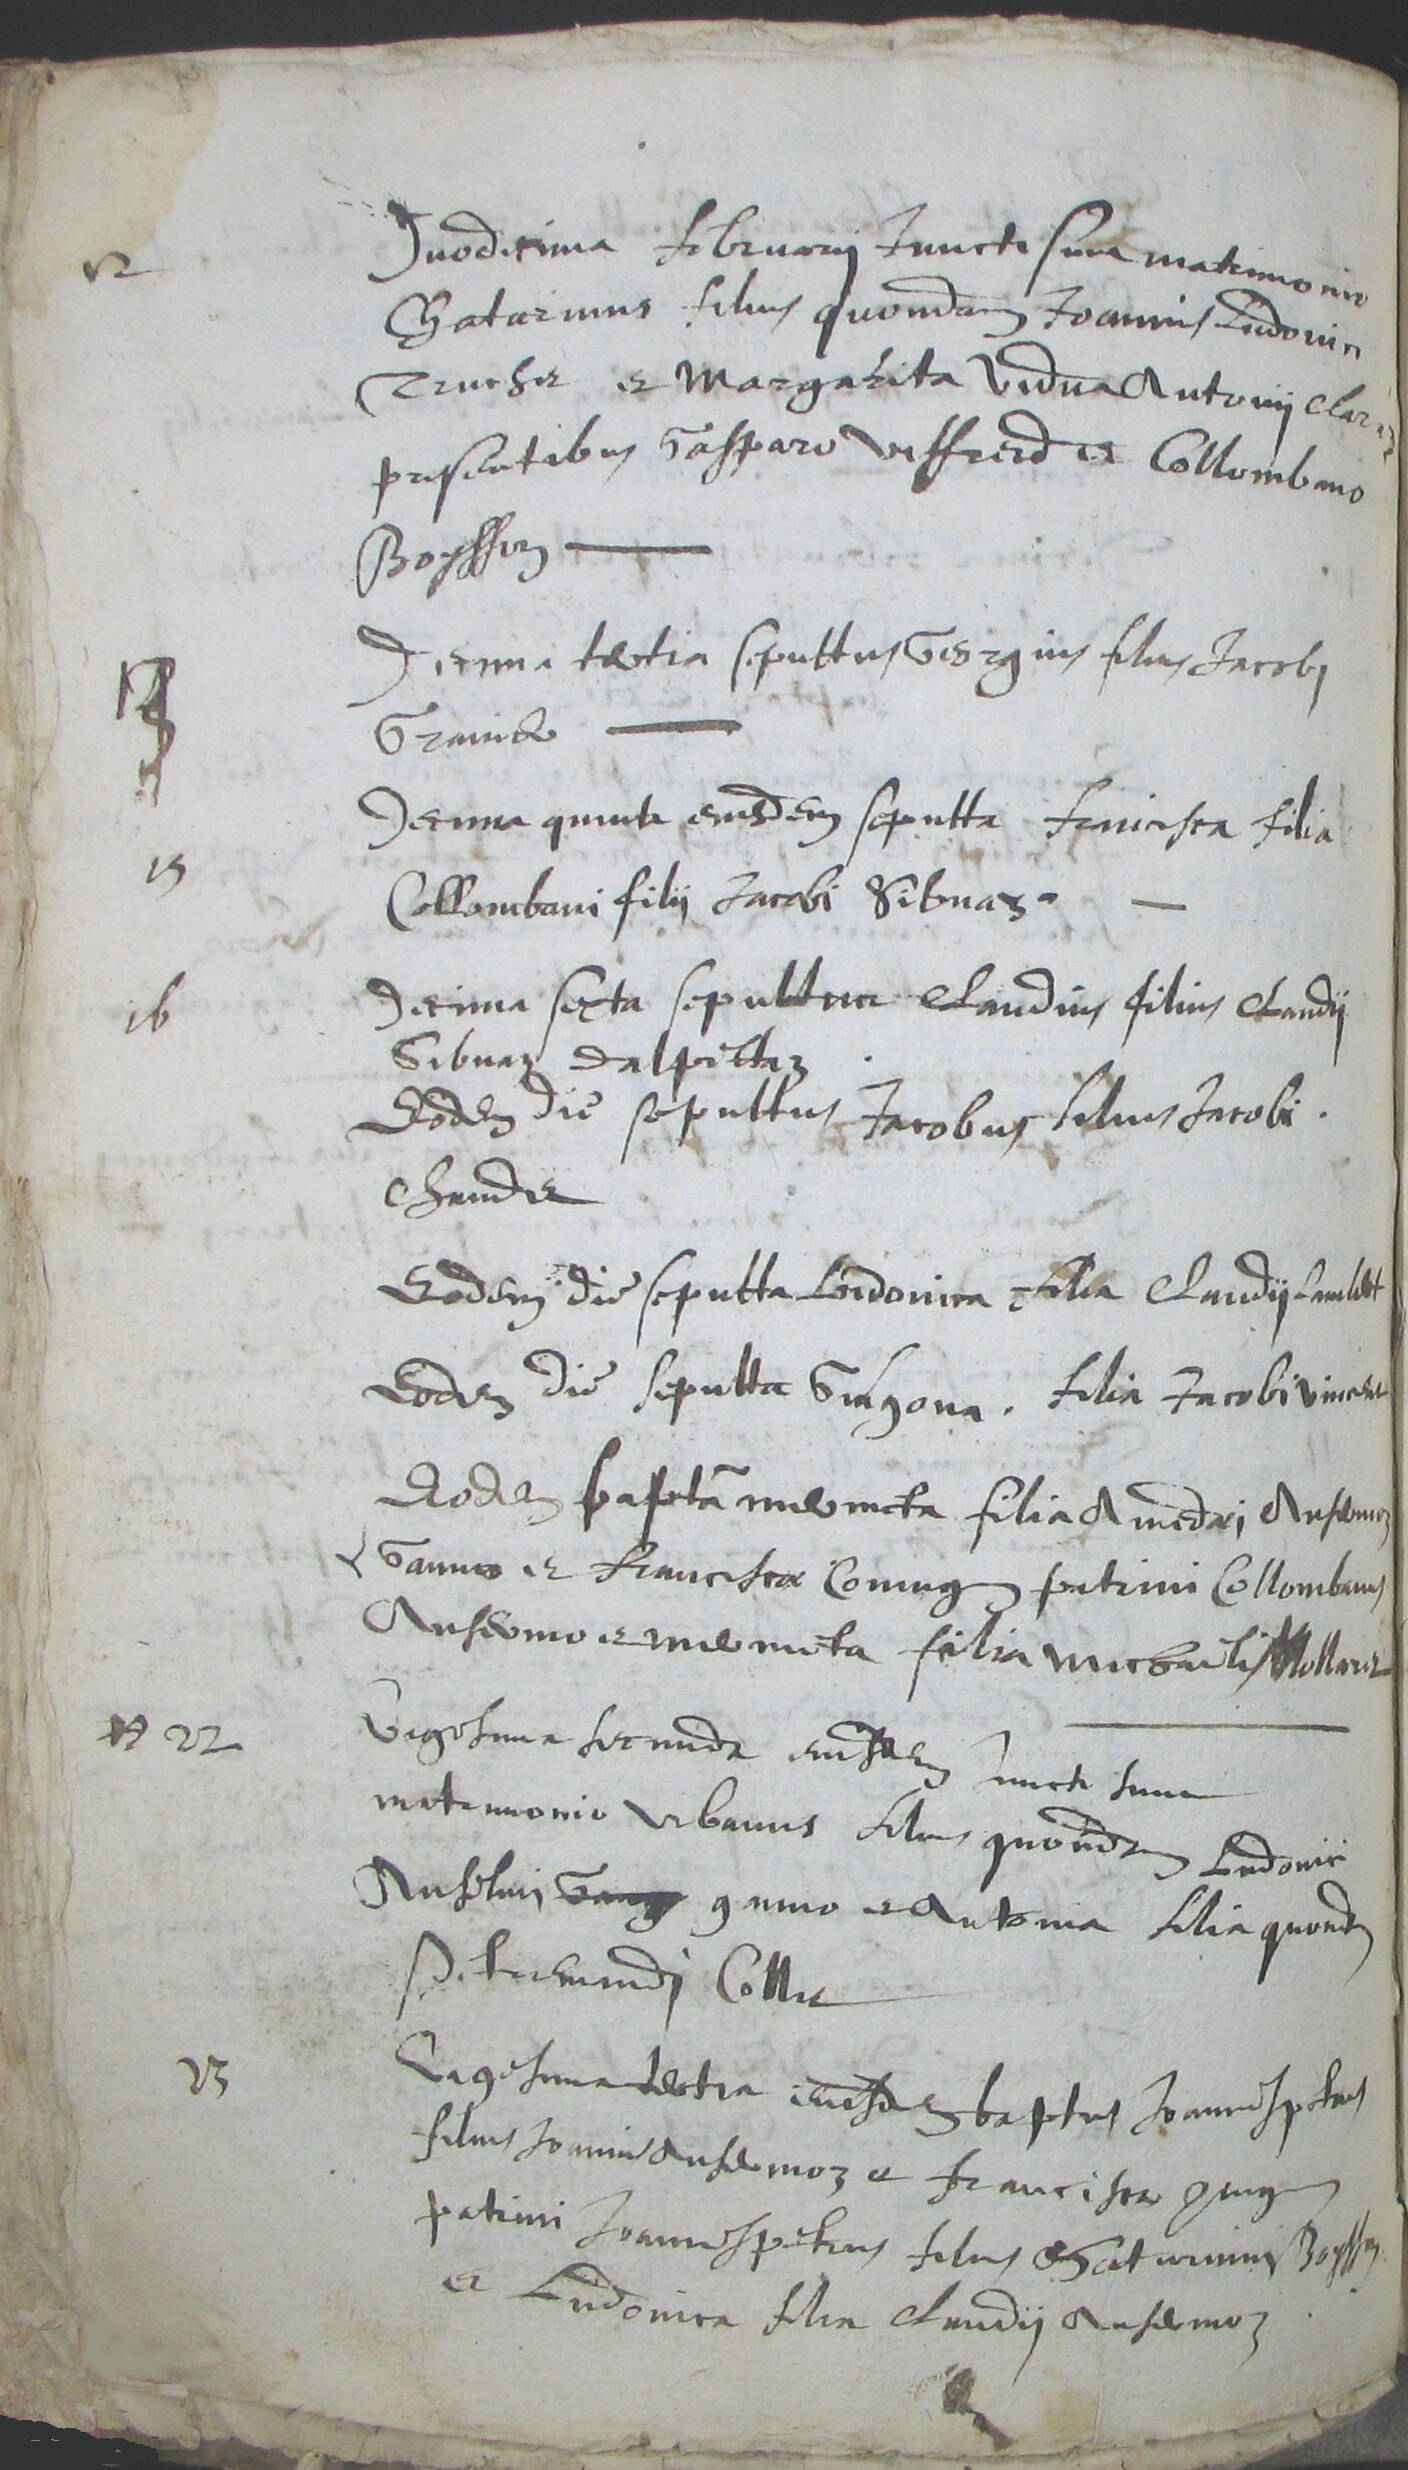 12
Duodecima februarij Juncti sunt matrimonio
Saturinus filius quondam Joannis Ludovici
Truchet et Margarita vidua Antonij Claraz
presentibus Gasparo Veffrerd et Collombano
Boysson
13
Decima tertia sepultus Georgius filius Jacobj
15
Decima quinta eiusdem sepulta Francisca filia
Collombani filij Jacobi Sibuaz
16
Decima sexta sepultus Claudius filius Claudij
Sibuaz Dalpettaz
Eodem die sepultus Jacobus filius Jacobi
Eodem die sepulta Ludovica filia Claudij
Eodem die sepulta filia Jacobi Vincent
Eodem baptã filia Amedei Anselmoz
Ganno et Francisca Coniugum patrini Collombanus
Anselmo et filia Michaelis Mollaret
22
Vigesima secunda eiusdem Juncti sunt
matrimonio Urbanus filius quondam Ludovici
Anselmi ganno et Antonia filia quondam
Petremandj Collet
23
Vigesima tertia eiusdem baptus Joannespetrus
filius Joannis Anselmoz et Francisca
patrini Joannespetrus filius Saturnini Boysson
et Ludovica filia Claudij Anselmoz